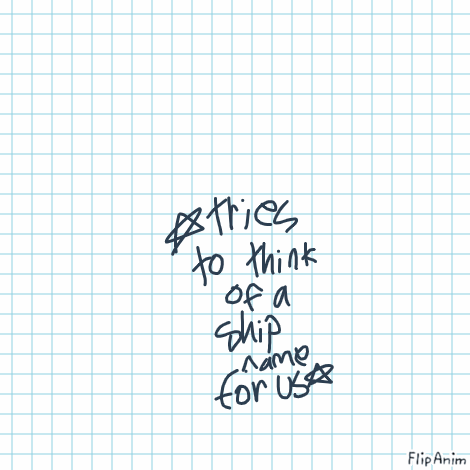 ☆tries
to think
of a
ship
name
for us☆
FlipAnim